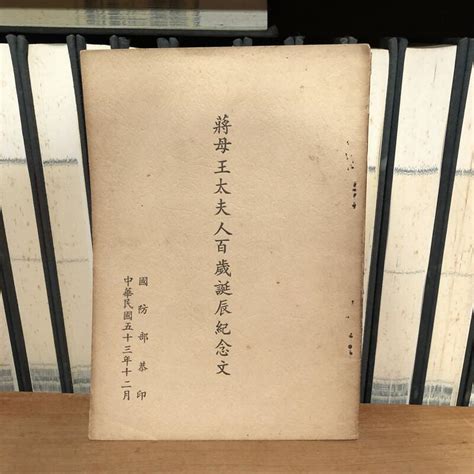 蔣母王太夫人百歲誕辰紀念文
國防部恭印
中華民國五十三年十二月